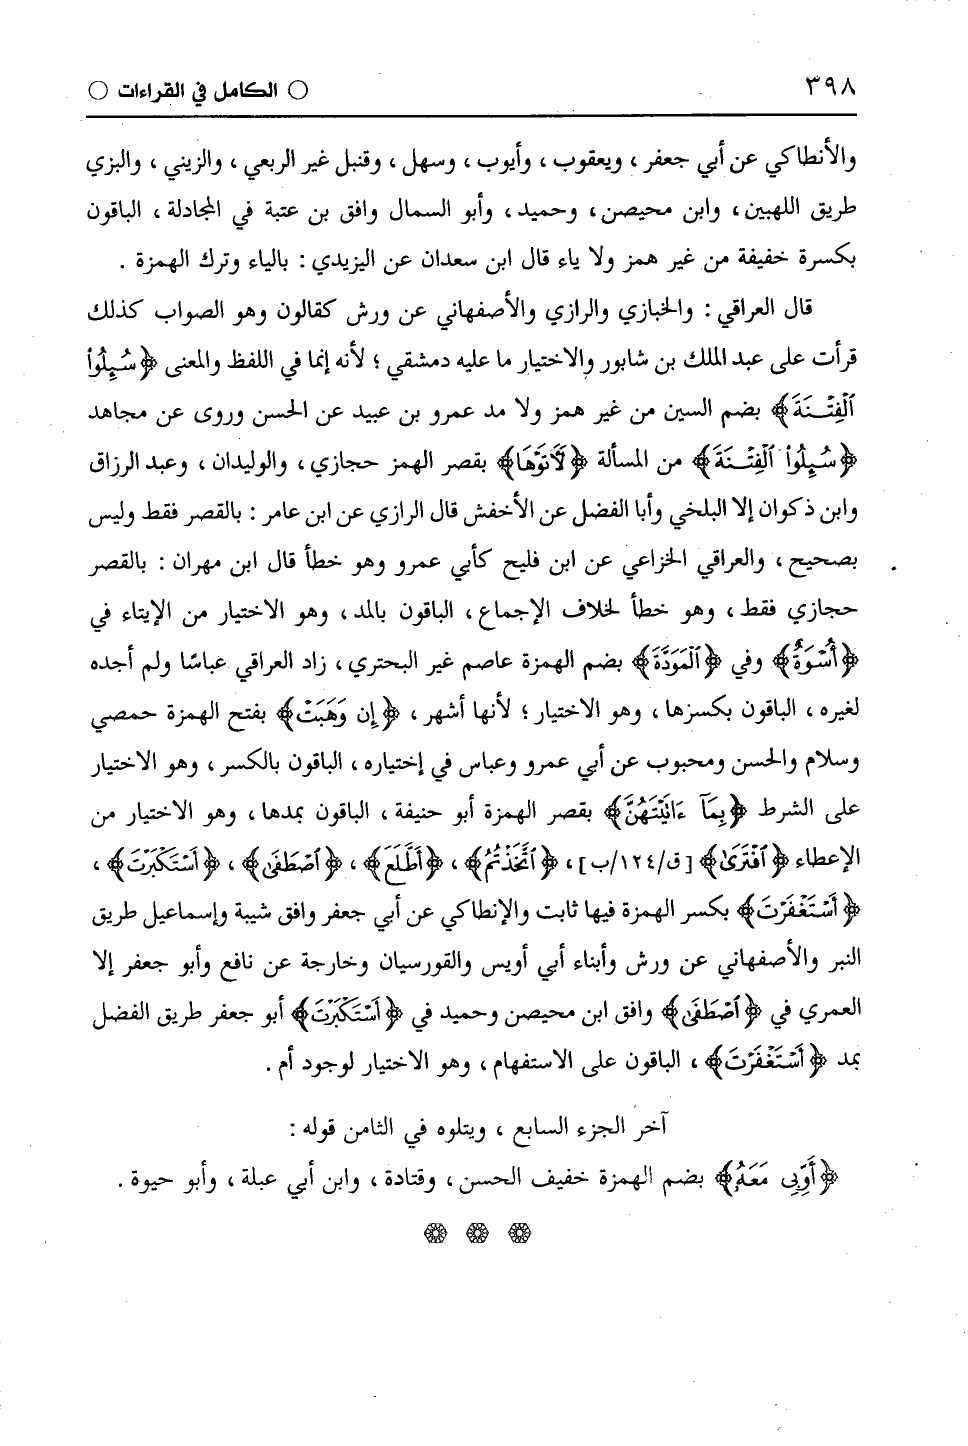 ٣٩٨ ○ الكامل في القراءات ○
والأنطاكي عن أبي جعفر ، ويعقوب ، وأيوب ، وسهل ، وقنبل غير الربعي ، والزيني ، والبزي
طريق اللهبين ، وابن محيصن ، وحميد ، وأبو السمال وافق بن عتبة في المجادلة ، الباقون
بكسرة خفيفة من غير همز ولا ياء قال ابن سعدان عن اليزيدي : بالياء وترك الهمزة .
قال العراقي : والخبازي والرازي والأصفهاني عن ورش كقالون وهو الصواب كذلك
قرأت على عبد الملك بن شابور والاختيار ما عليه دمشقي ؛ لأنه إنما في اللفظ والمعنى ﴿سُئِلُوا۟
ٱلْفِتْنَةَ﴾ بضم السين من غير همز ولا مد عمرو بن عبيد عن الحسن وروى عن مجاهد
﴿سُئِلُوا۟ ٱلْفِتْنَةَ﴾ من المسألة ﴿لَآتَوْهَا﴾ بقصر الهمز حجازي ، والوليدان ، وعبد الرزاق
وابن ذكوان إلا البلخي وأبا الفضل عن الأخفش قال الرازي عن ابن عامر : بالقصر فقط وليس
بصحيح ، والعراقي الخزاعي عن ابن فليح كأبي عمرو وهو خطأ قال ابن مهران : بالقصر
حجازي فقط ، وهو خطأ لخلاف الإجماع ، الباقون بالمد ، وهو الاختيار من الإيتاء في
﴿أُسْوَةٌ﴾ وفي ﴿ٱلْمَوَدَّةَ﴾ بضم الهمزة عاصم غير البحتري ، زاد العراقي عباسًا ولم أجده
لغيره ، الباقون بكسرها ، وهو الاختيار ؛ لأنها أشهر ، ﴿إِن وَهَبَتْ﴾ بفتح الهمزة حمصي
وسلام والحسن ومحبوب عن أبي عمرو وعباس في إختياره ، الباقون بالكسر ، وهو الاختيار
على الشرط ﴿بِمَآ ءَاتَيْتَهُنَّ﴾ بقصر الهمزة أبو حنيفة ، الباقون بمدها ، وهو الاختيار من
الإعطاء ﴿ٱفْتَرَىٰ﴾ [ق/١٢٤/ب] ، ﴿أَتَّخَذْتُمْ﴾ ، ﴿أَطَّلَعَ﴾ ، ﴿أَصْطَفَى﴾ ، ﴿أَسْتَكْبَرْتَ﴾ ،
﴿أَسْتَغْفَرْتَ﴾ بكسر الهمزة فيها ثابت والإنطاكي عن أبي جعفر وافق شيبة وإسماعيل طريق
النبر والأصفهاني عن ورش وأبناء أبي أويس والقورسيان وخارجة عن نافع وأبو جعفر إلا
العمري في ﴿أَصْطَفَى﴾ وافق ابن محيصن وحميد في ﴿أَسْتَكْبَرْتَ﴾ أبو جعفر طريق الفضل
بمد ﴿أَسْتَغْفَرْتَ﴾ ، الباقون على الاستفهام ، وهو الاختيار لوجود أم .
آخر الجزء السابع ، ويتلوه في الثامن قوله :
﴿أَوِّبِى مَعَهُۥ﴾ بضم الهمزة خفيف الحسن ، وقتادة ، وابن أبي عبلة ، وأبو حيوة .